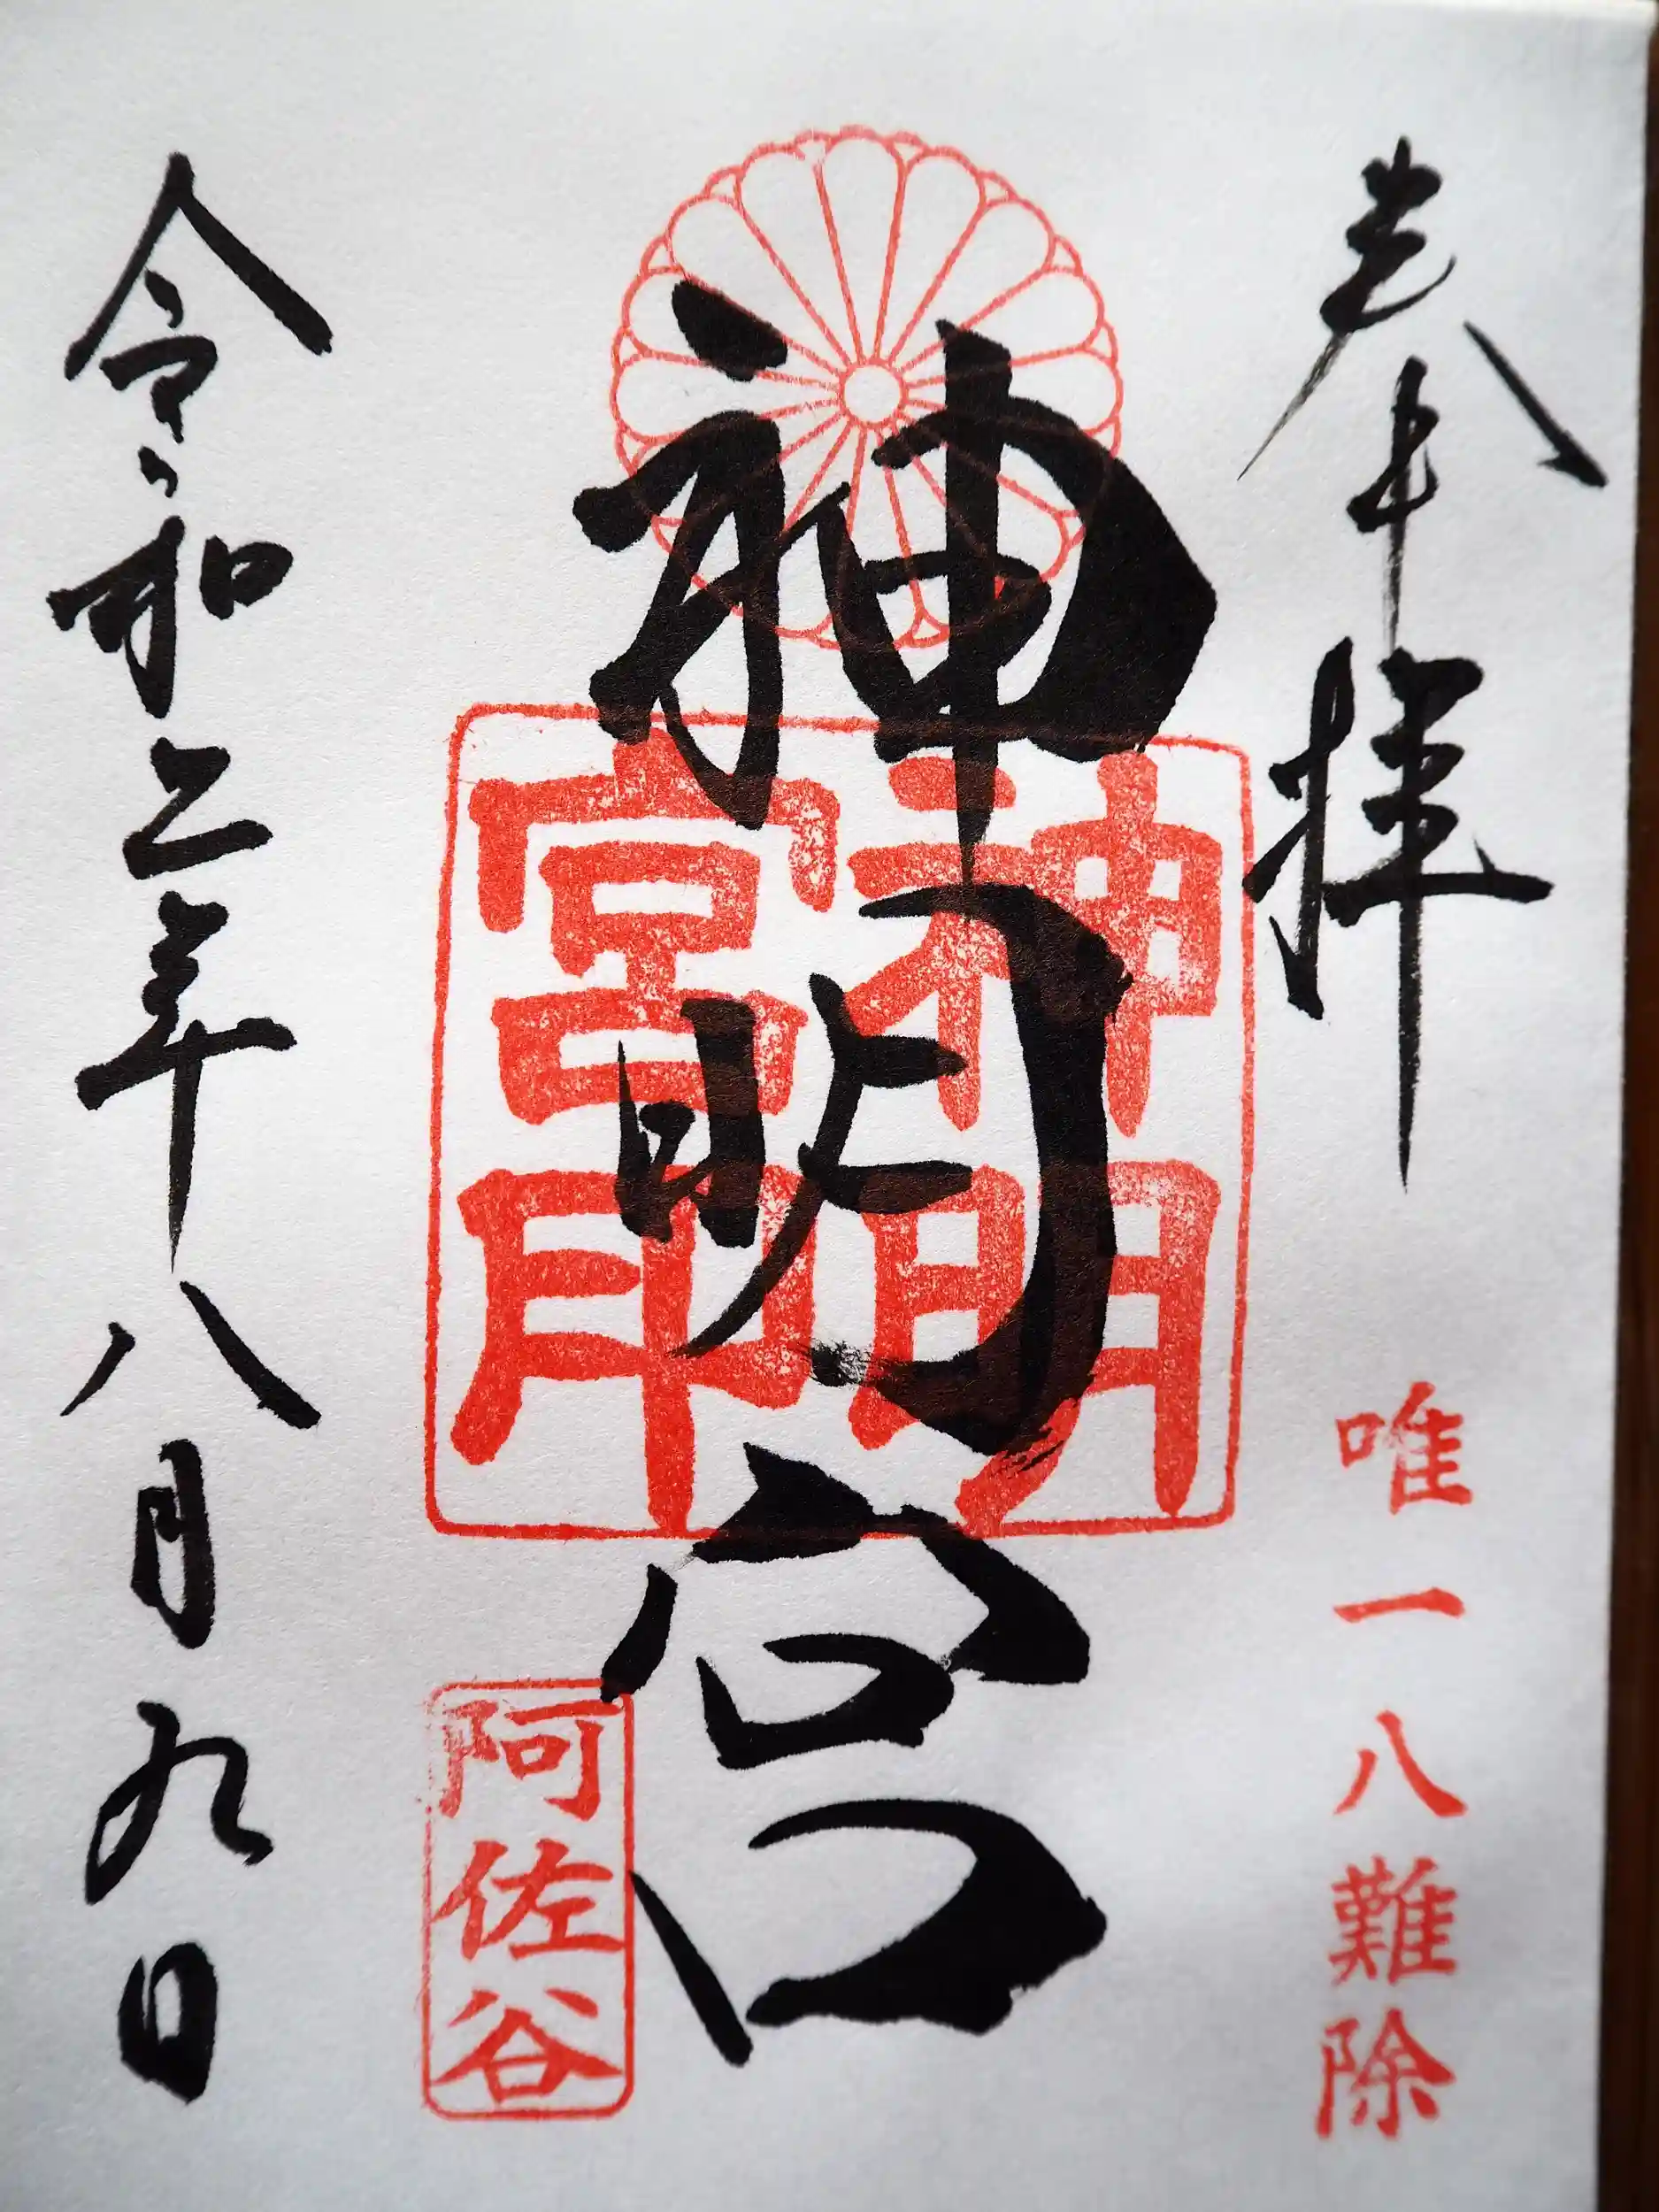 奉拝
唯一八難除
神明宮
神明
宮印
阿佐谷
令和二年八月九日